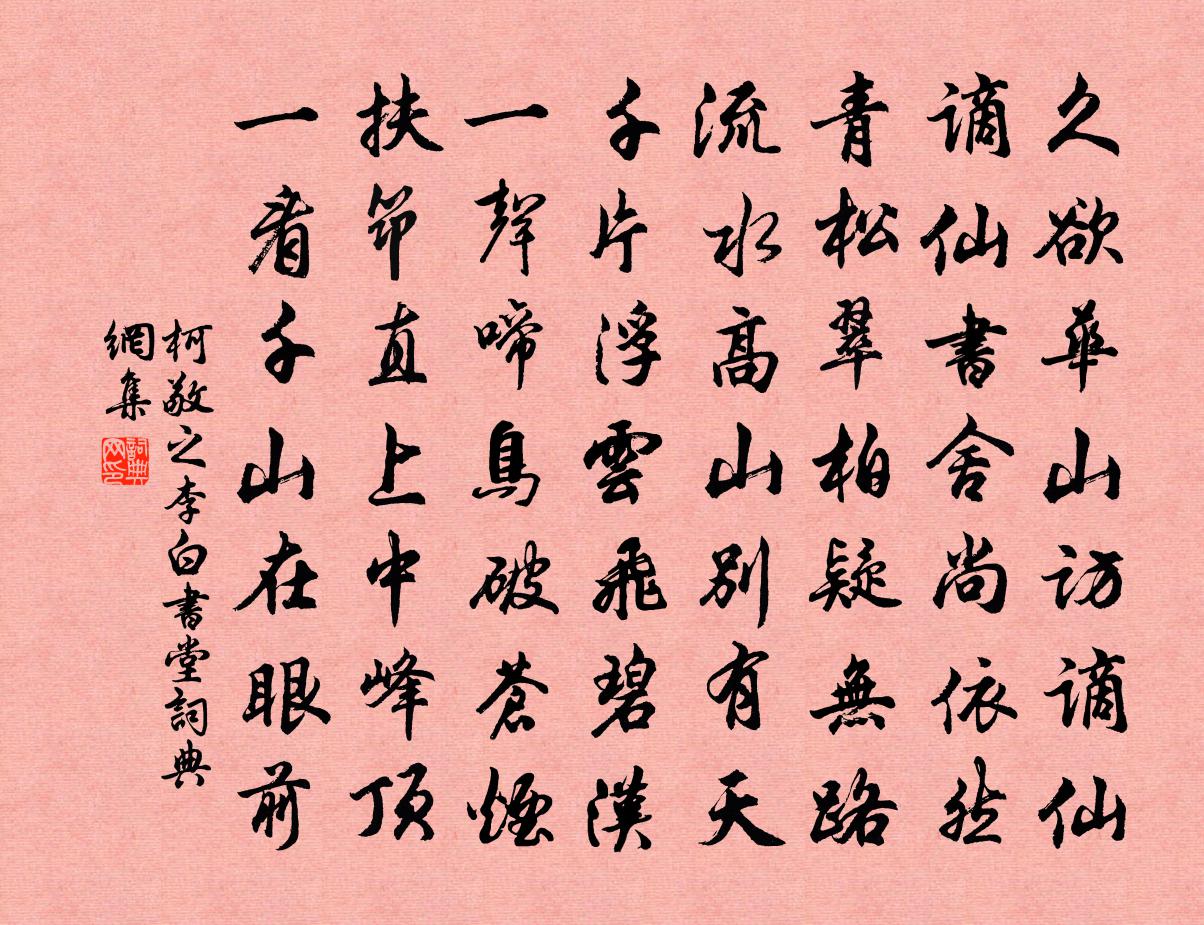 久欲華山訪謫仙
謫仙書舍尚依然
青松翠柏疑無路
流水高山別有天
千片浮雲飛碧漢
一聲啼鳥破蒼煙
扶筇直上中峰頂
一看千山在眼前
柯敬之李白書堂詞典
網集
詞典網印